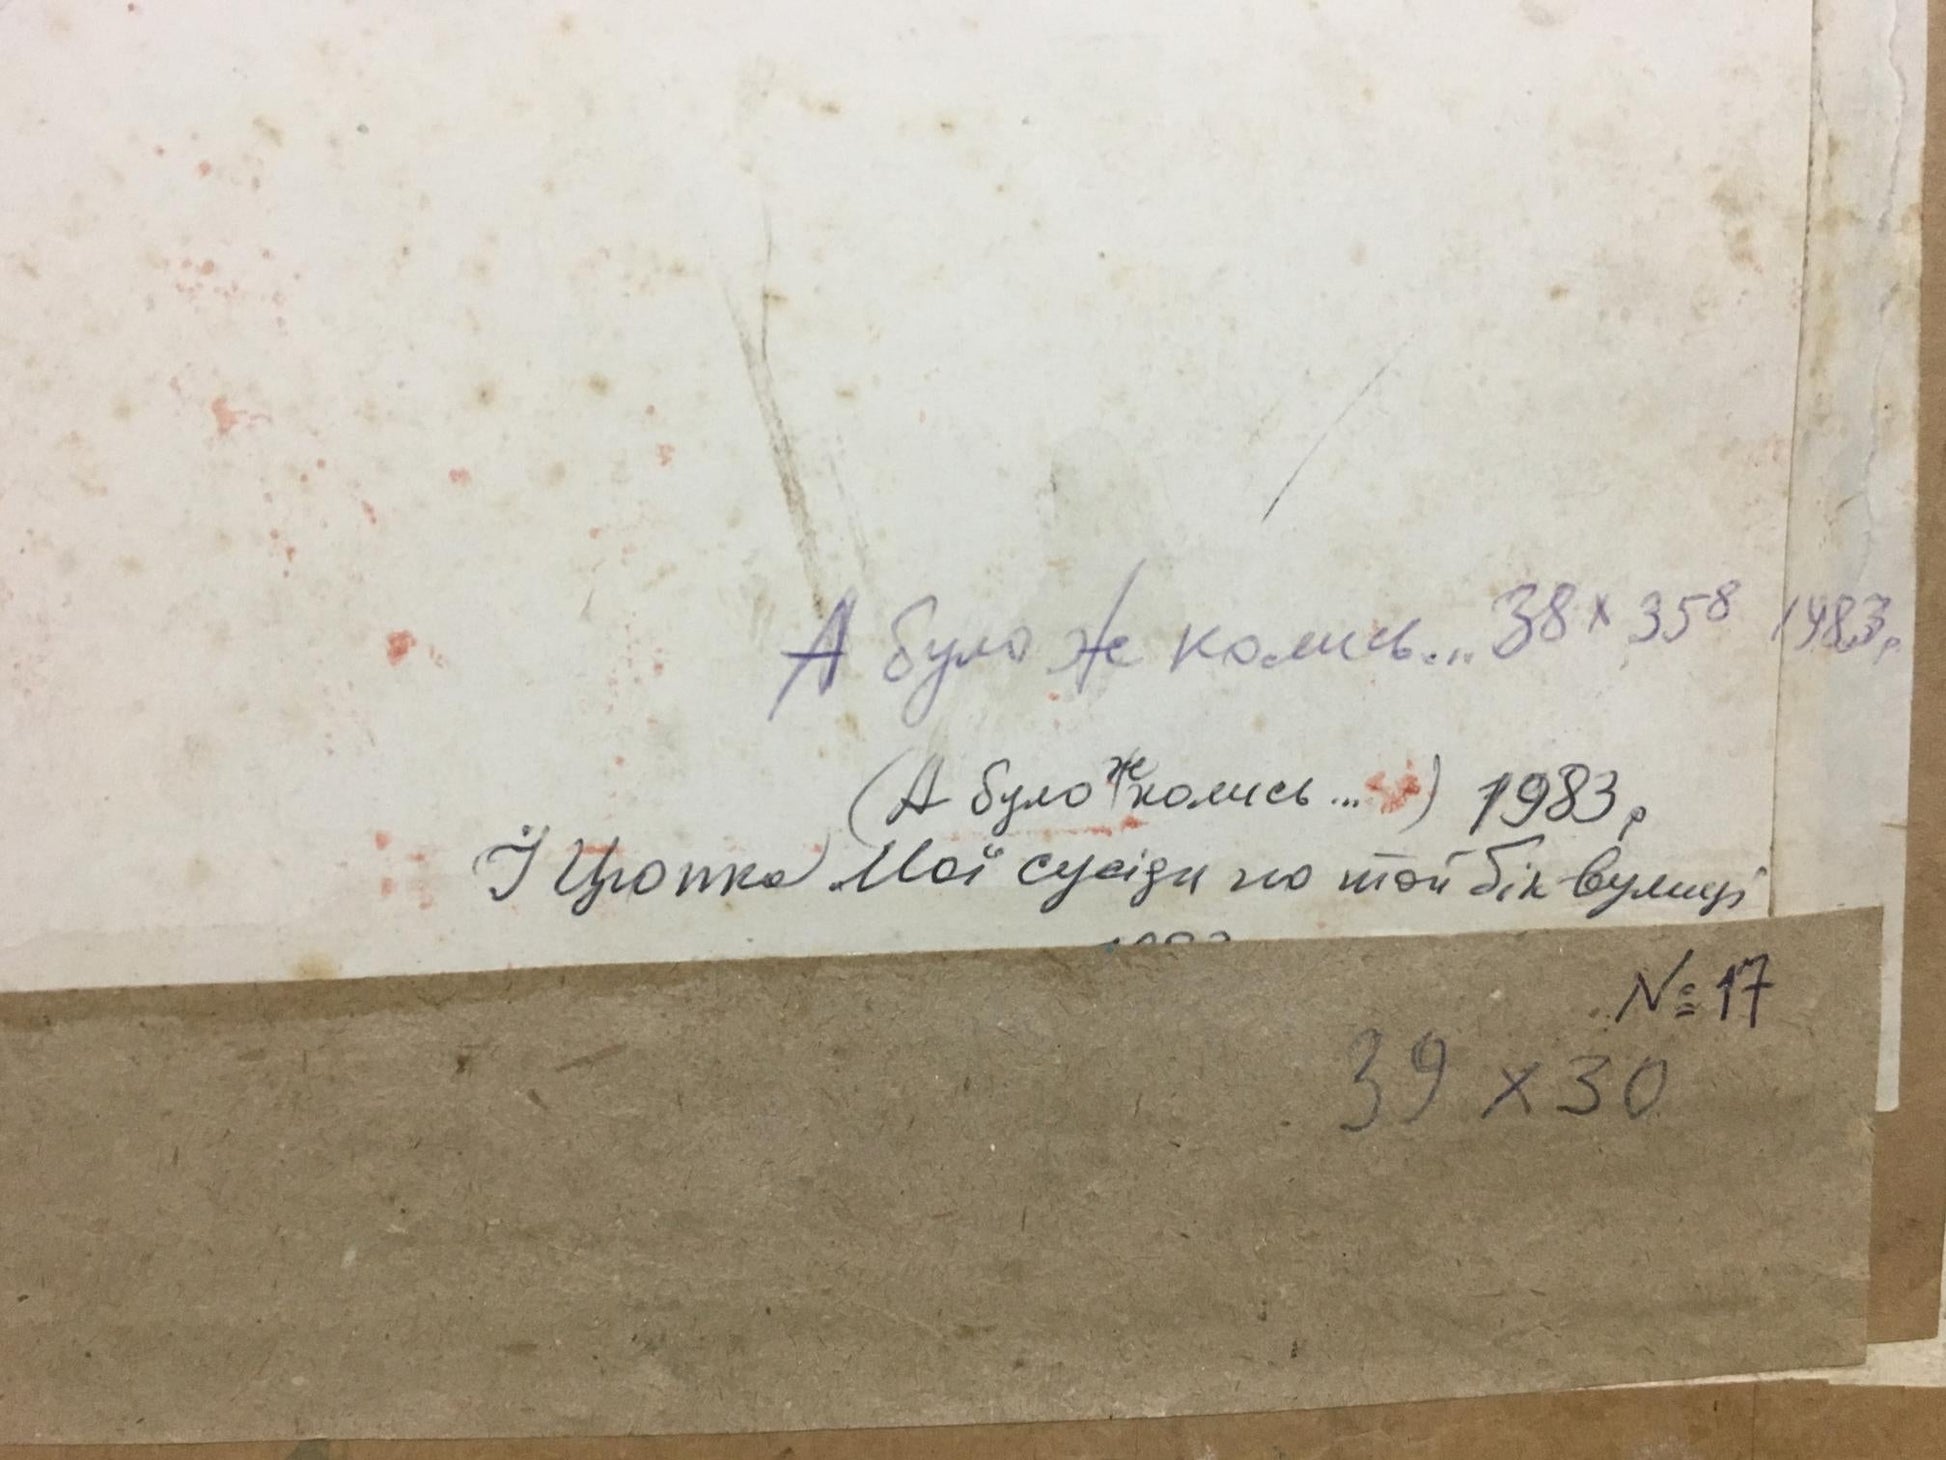 А було же колись... 38 x 35⁸ 1983р
(А було же колись...) 1983р
Мої сусіди по той бік вулиці
№ 17
39 x 30